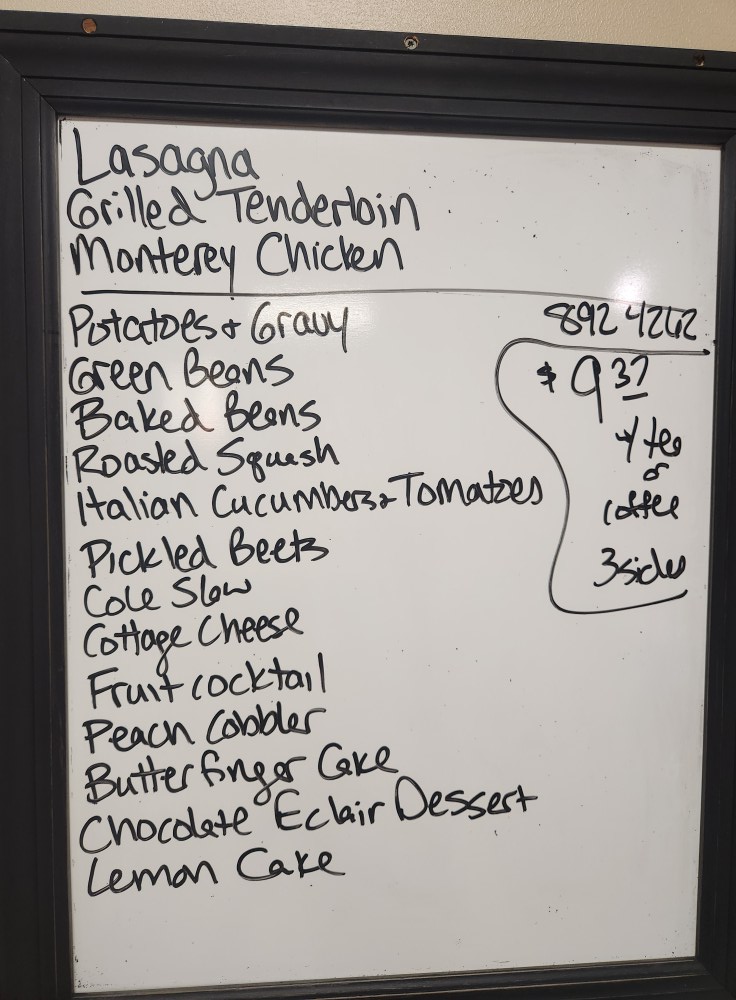 Lasagna
Grilled Tenderloin
Monterey Chicken
Potatoes + Gravy
Green Beans
Baked Beans
Roasted Squash
Italian Cucumbers + Tomatoes
Pickled Beets
Cole Slaw
Cottage Cheese
Fruit cocktail
Peach Cobbler
Butterfinger Cake
Chocolate Eclair Dessert
Lemon Cake
892 4262
$ 9 37
w/ tea
or
coffee
3 sides